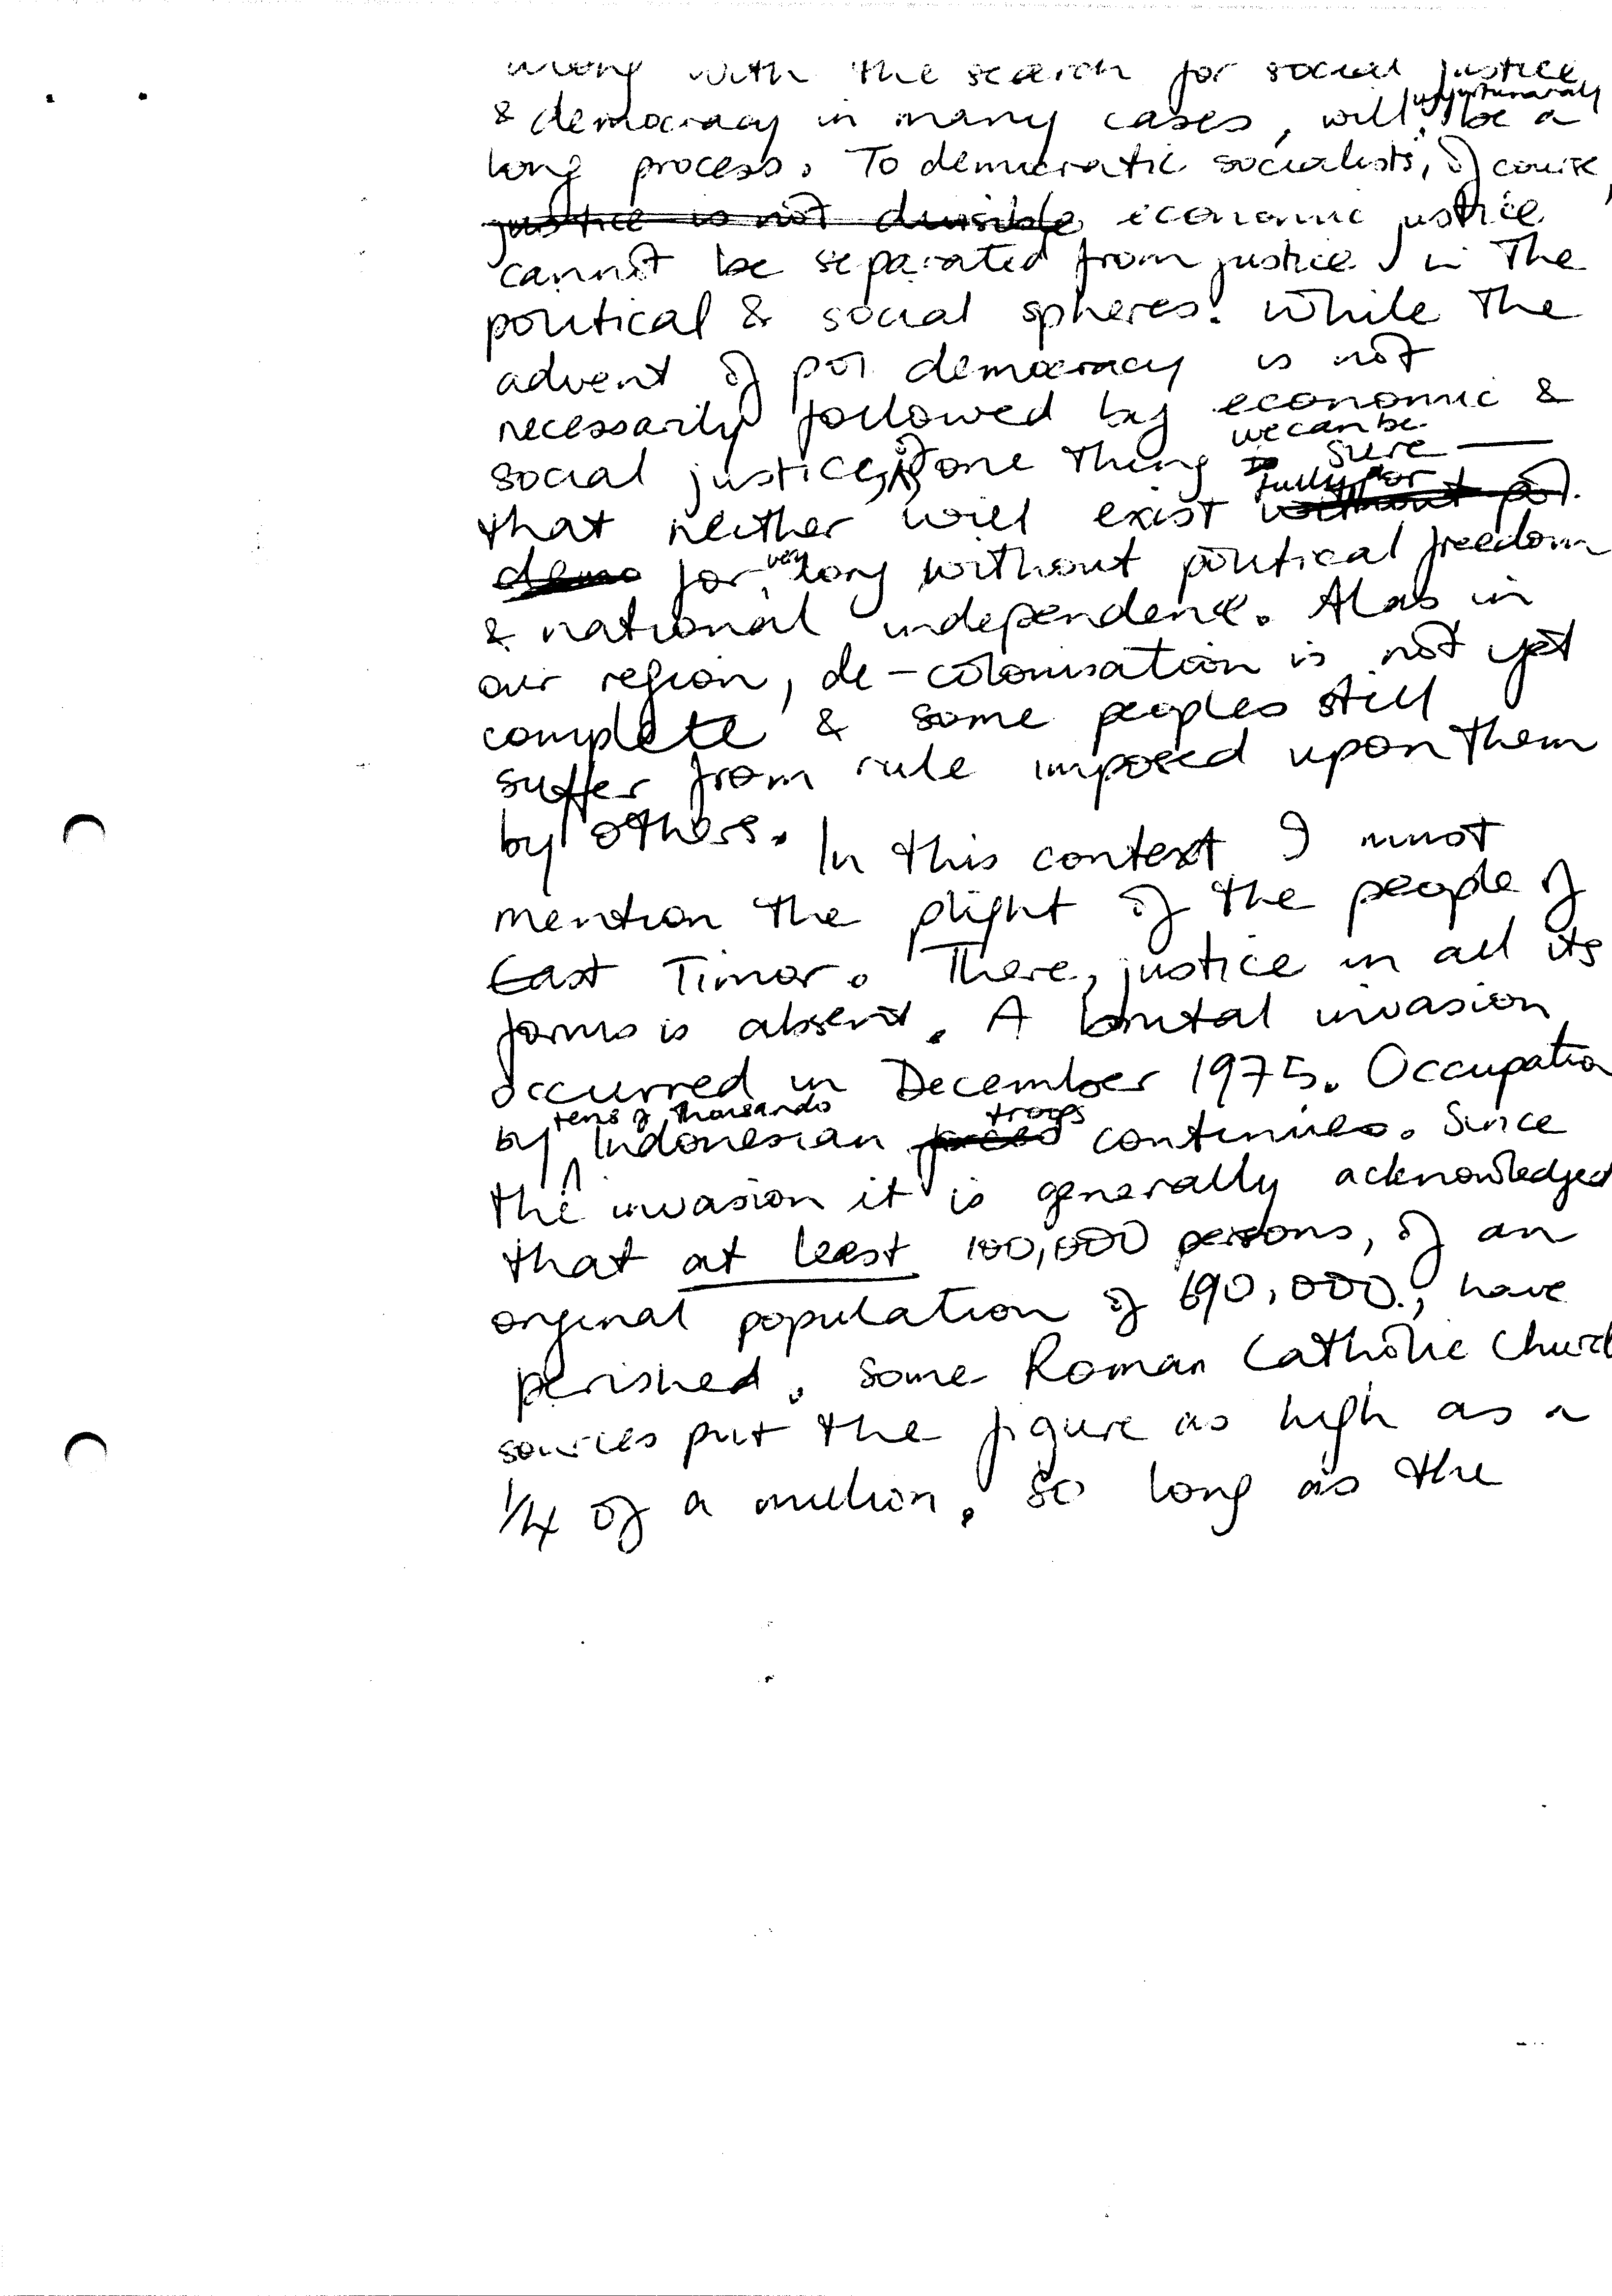 along with the search for social justice
& democracy in many cases, will unfortunately be a
long process. To democratic socialists, of course,
justice is not divisible economic justice
cannot be separated from justice in the
political & social spheres. While the
advent of pol democracy is not
necessarily followed by economic &
we can be
social justice, of one thing is sure —
fully or
that neither will exist without pol.
demo for very long without political freedom
& national independence. Alas in
our region, de-colonisation is not yet
complete & some peoples still
suffer from rule imposed upon them
by others. In this context I must
mention the plight of the people of
East Timor. There, justice in all its
forms is absent. A brutal invasion
occurred in December 1975. Occupation
tens of thousands troops
by Indonesian forces continues. Since
the invasion it is generally acknowledged
that at least 100,000 persons, of an
orginal population of 690,000, have
perished. Some Roman Catholic Church
sources put the figure as high as a
1/4 of a million. So long as the